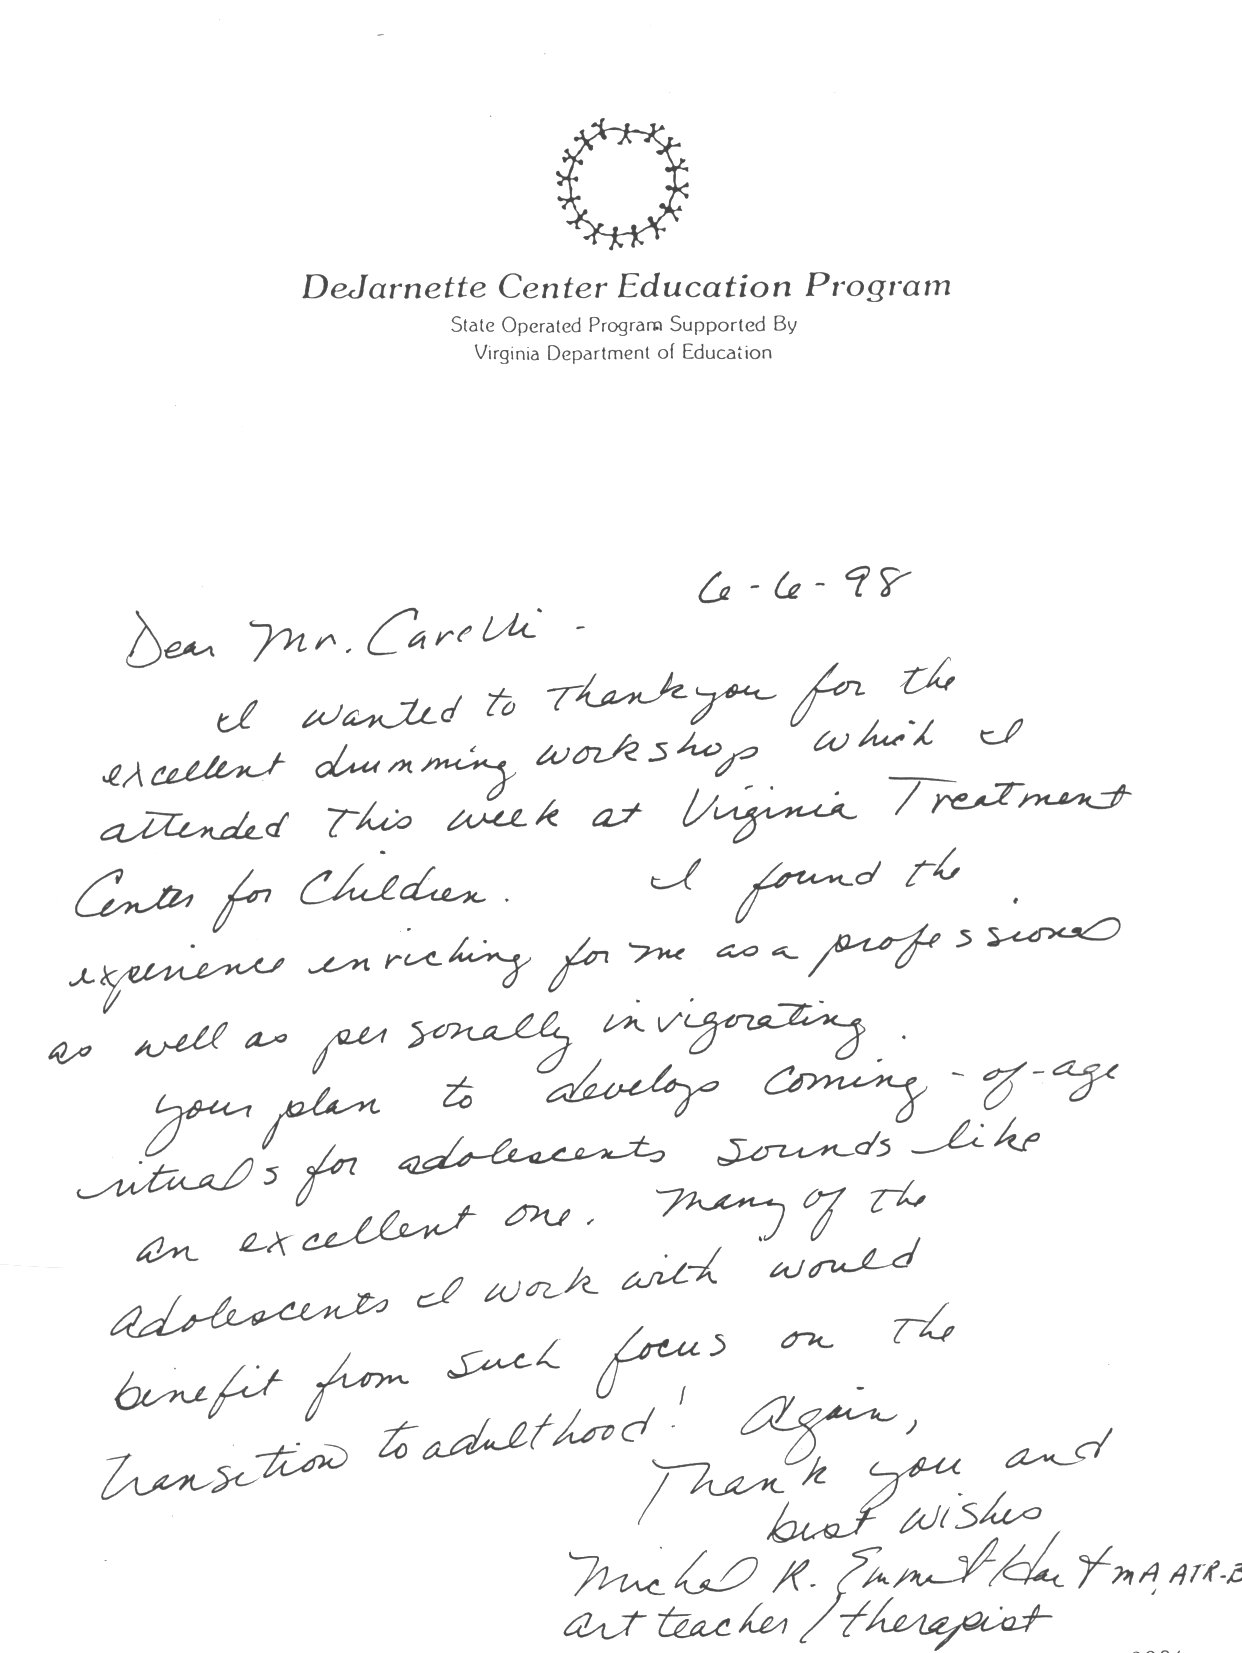 DeJarnette Center Education Program
State Operated Program Supported By
Virginia Department of Education
6-6-98
Dear Mr. Carelli -
I wanted to thank you for the
excellent drumming workshop which I
attended this week at Virginia Treatment
Center for Children. I found the
experience enriching for me as a professional
as well as personally invigorating.
Your plan to develop coming-of-age
rituals for adolescents sounds like
an excellent one. Many of the
adolescents I work with would
benefit from such focus on the
transition to adulthood! Again,
Thank you and
best wishes
R. Emmet Hart MA, ATR-B
art teacher / therapist